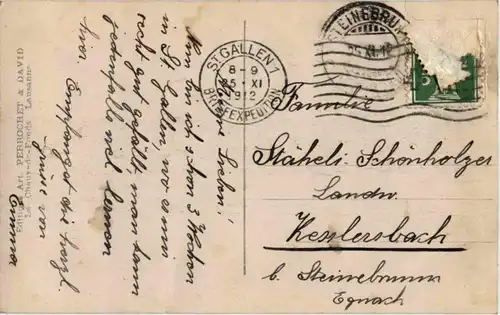 Edition Art. PERROCHET & DAVID
La Chaux-de-Fonds Lausanne
Meine Lieben!
Nun bin ich schon 3 Wochen
in St. Gallen, wo es mir
recht gut gefällt, man kann
jedenfalls viel lernen
hier. Empfanget die herzl.
Grüsse von
Emma
ST GALLEN 1
8-9
25. XI
1912
BRIEFEXPEDITION
STEINEBRUNN
XI. 12
5
Familie
Stäheli-Schönholzer
Landw.
Kesslersbach
b. Steinebrunn
Egnach